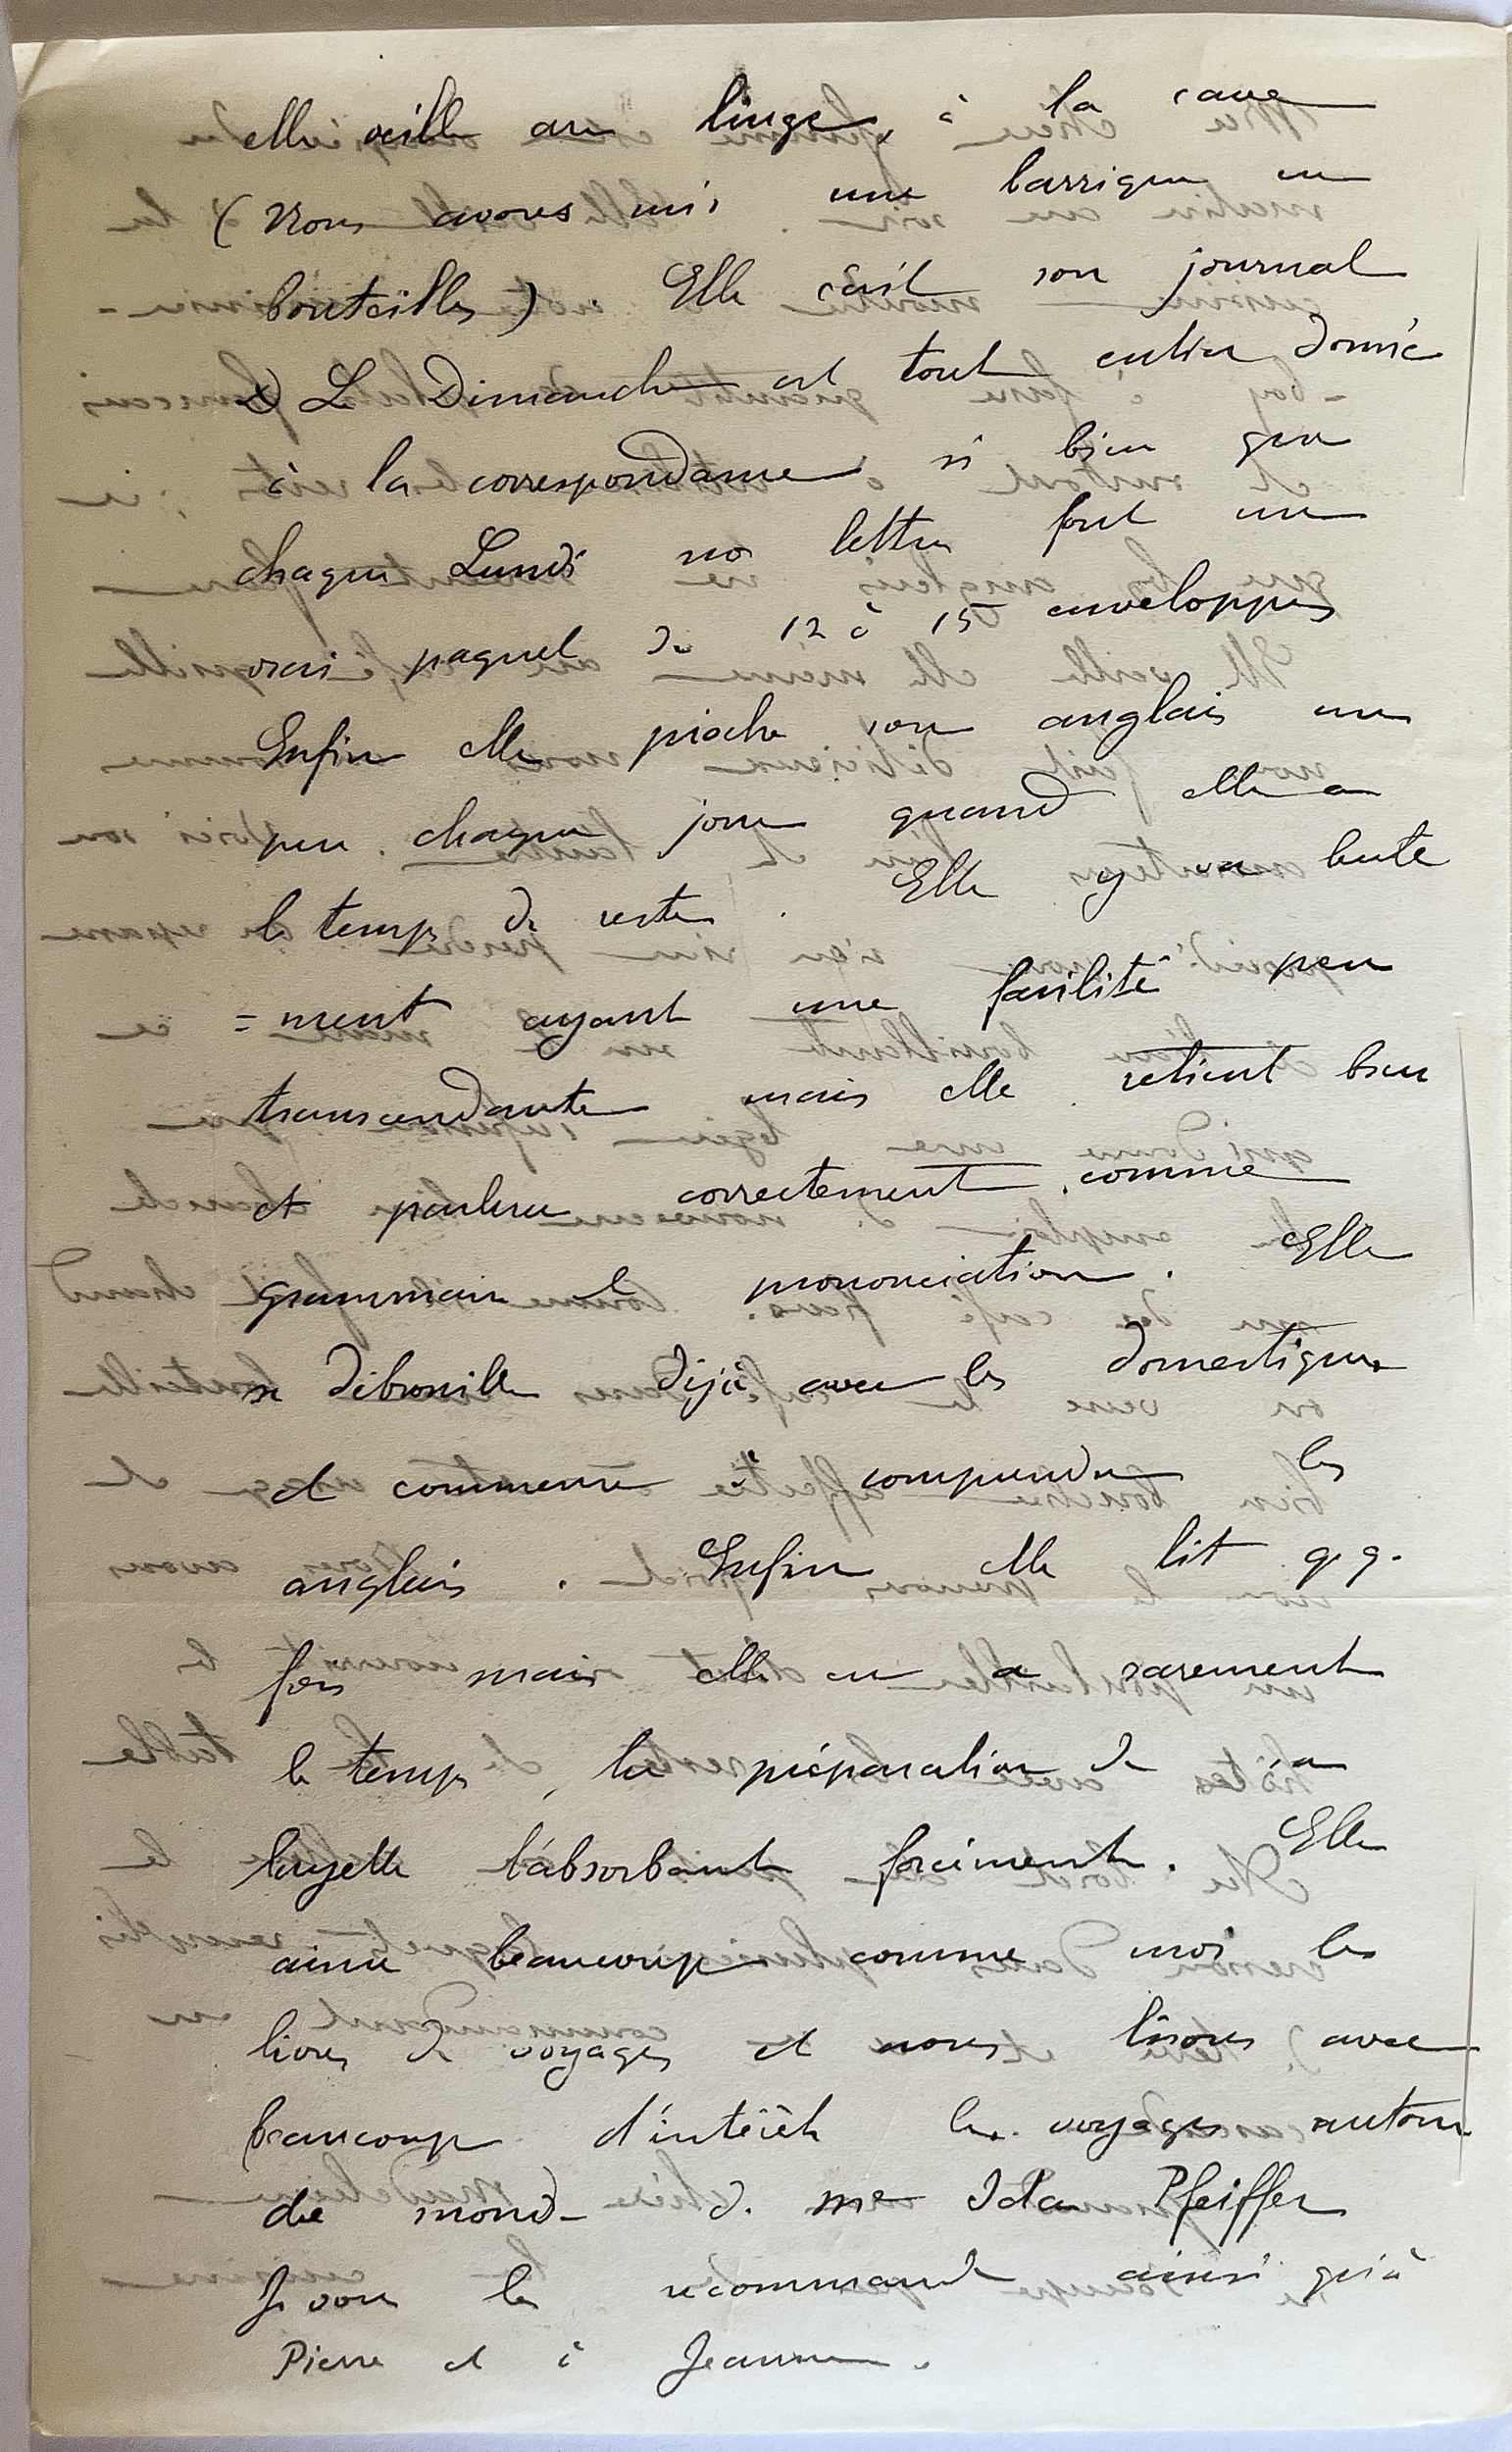 elle veille au linge, à la cave
(Nous avons mis une barrique en
bouteilles). Elle écrit son journal
Le Dimanche est tout entier donné
à la correspondance si bien que
chaque Lundi nos lettres font un
vrai paquet de 12 à 15 enveloppes
Enfin elle pioche son anglais un
peu chaque jour quand elle a
le temps de reste. Elle y va lente
=ment ayant une facilité peu
transcendante mais elle retient bien
et parlera correctement comme
grammaire et prononciation. Elle
se débrouille déjà avec les domestiques
et commence à comprendre les
anglais. Enfin elle lit q.q.
fois mais elle en a rarement
le temps, la préparation de sa
layette l'absorbant forcément. Elle
aime beaucoup comme moi les
livres de voyages et nous lisons avec
beaucoup d'intérêt les voyages autour
du monde de Me Ida Pfeiffer
Je vous les recommande ainsi qu'à
Pierre et à Jeanne.